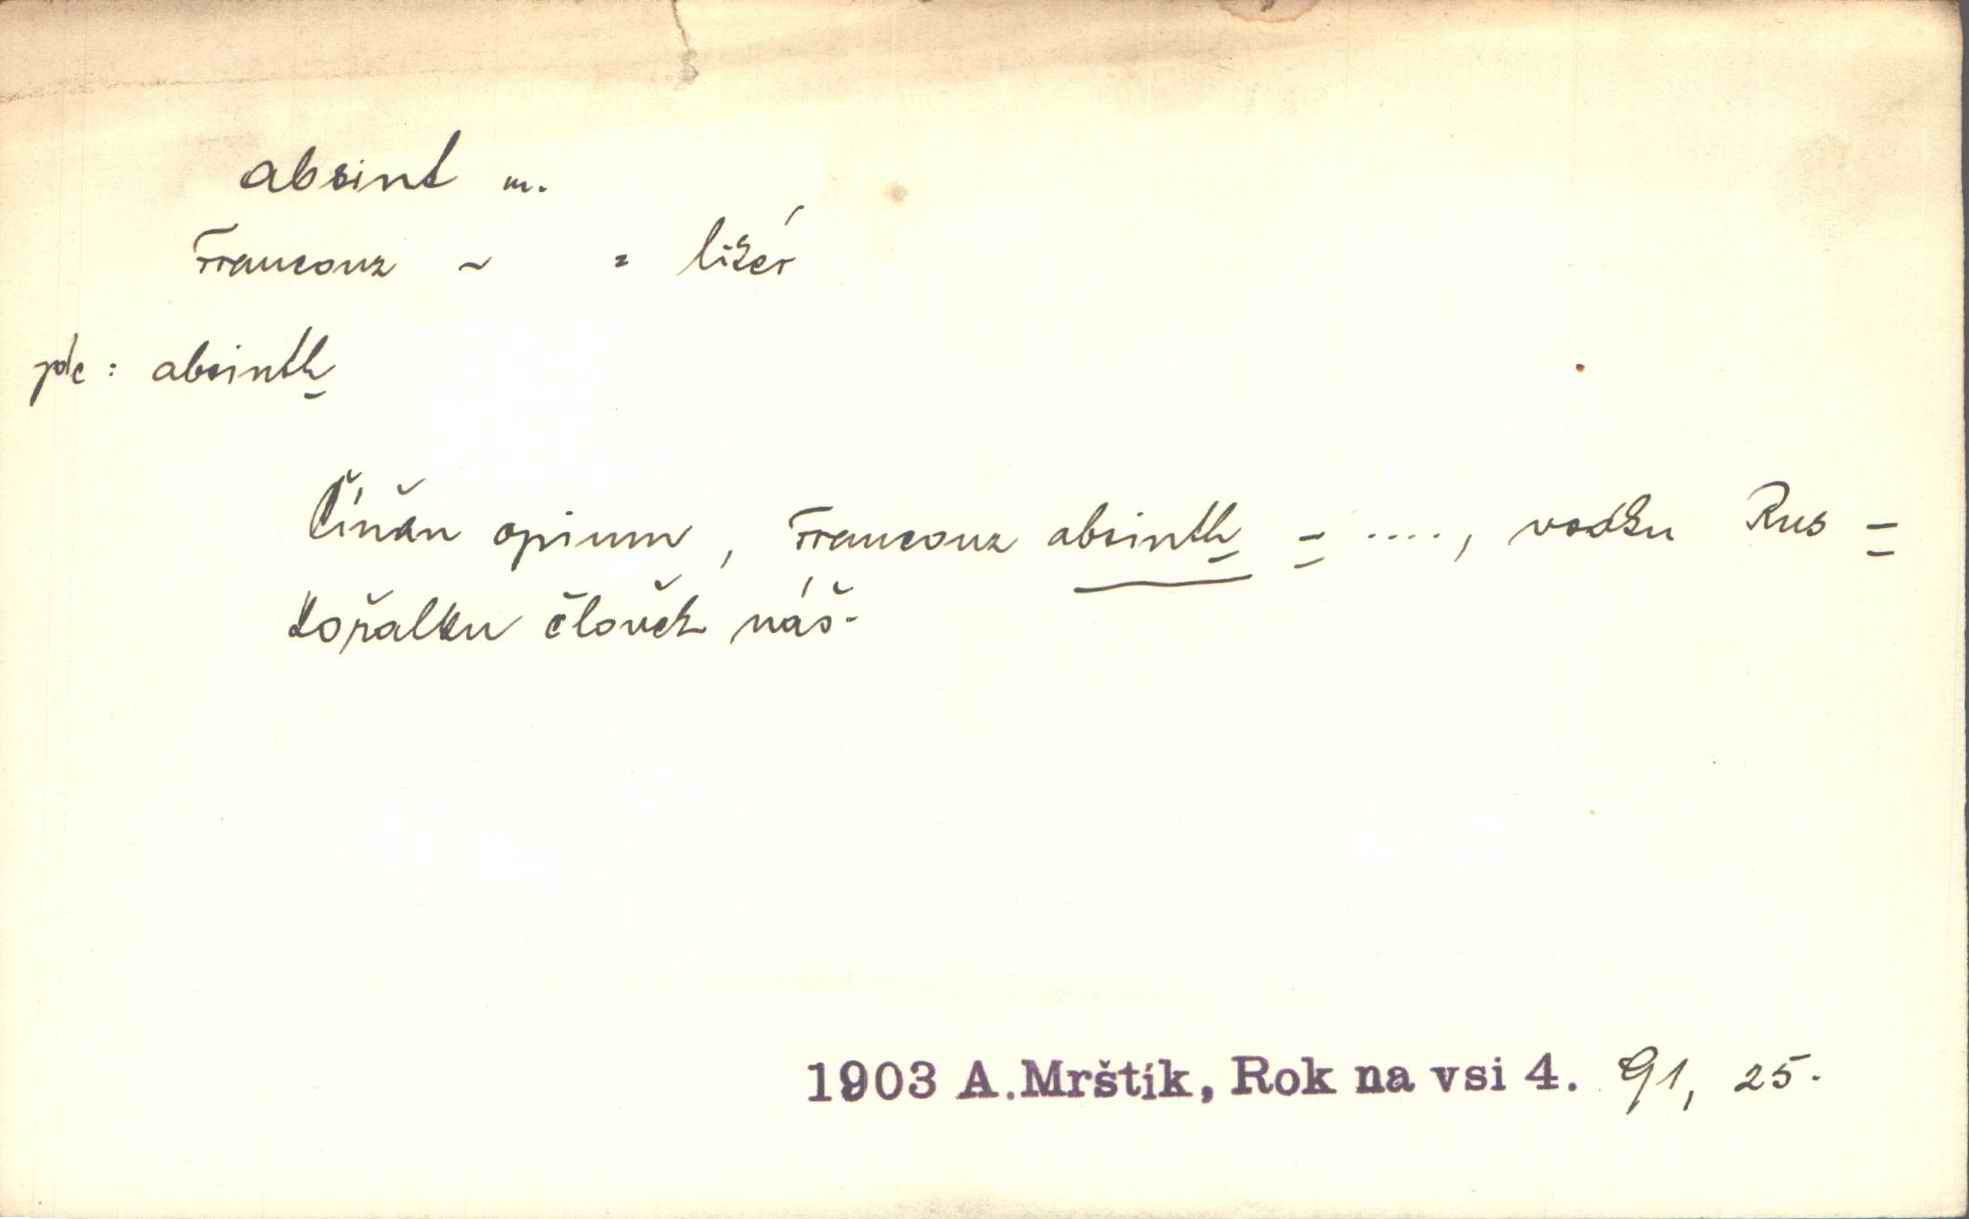 absint m.
Francouz ~ = likér
pde: absinth
Číňan opium, Francouz absinth = ...., vodku Rus =
kořalku člověk náš.
1903 A.Mrštík, Rok na vsi 4. 91, 25.